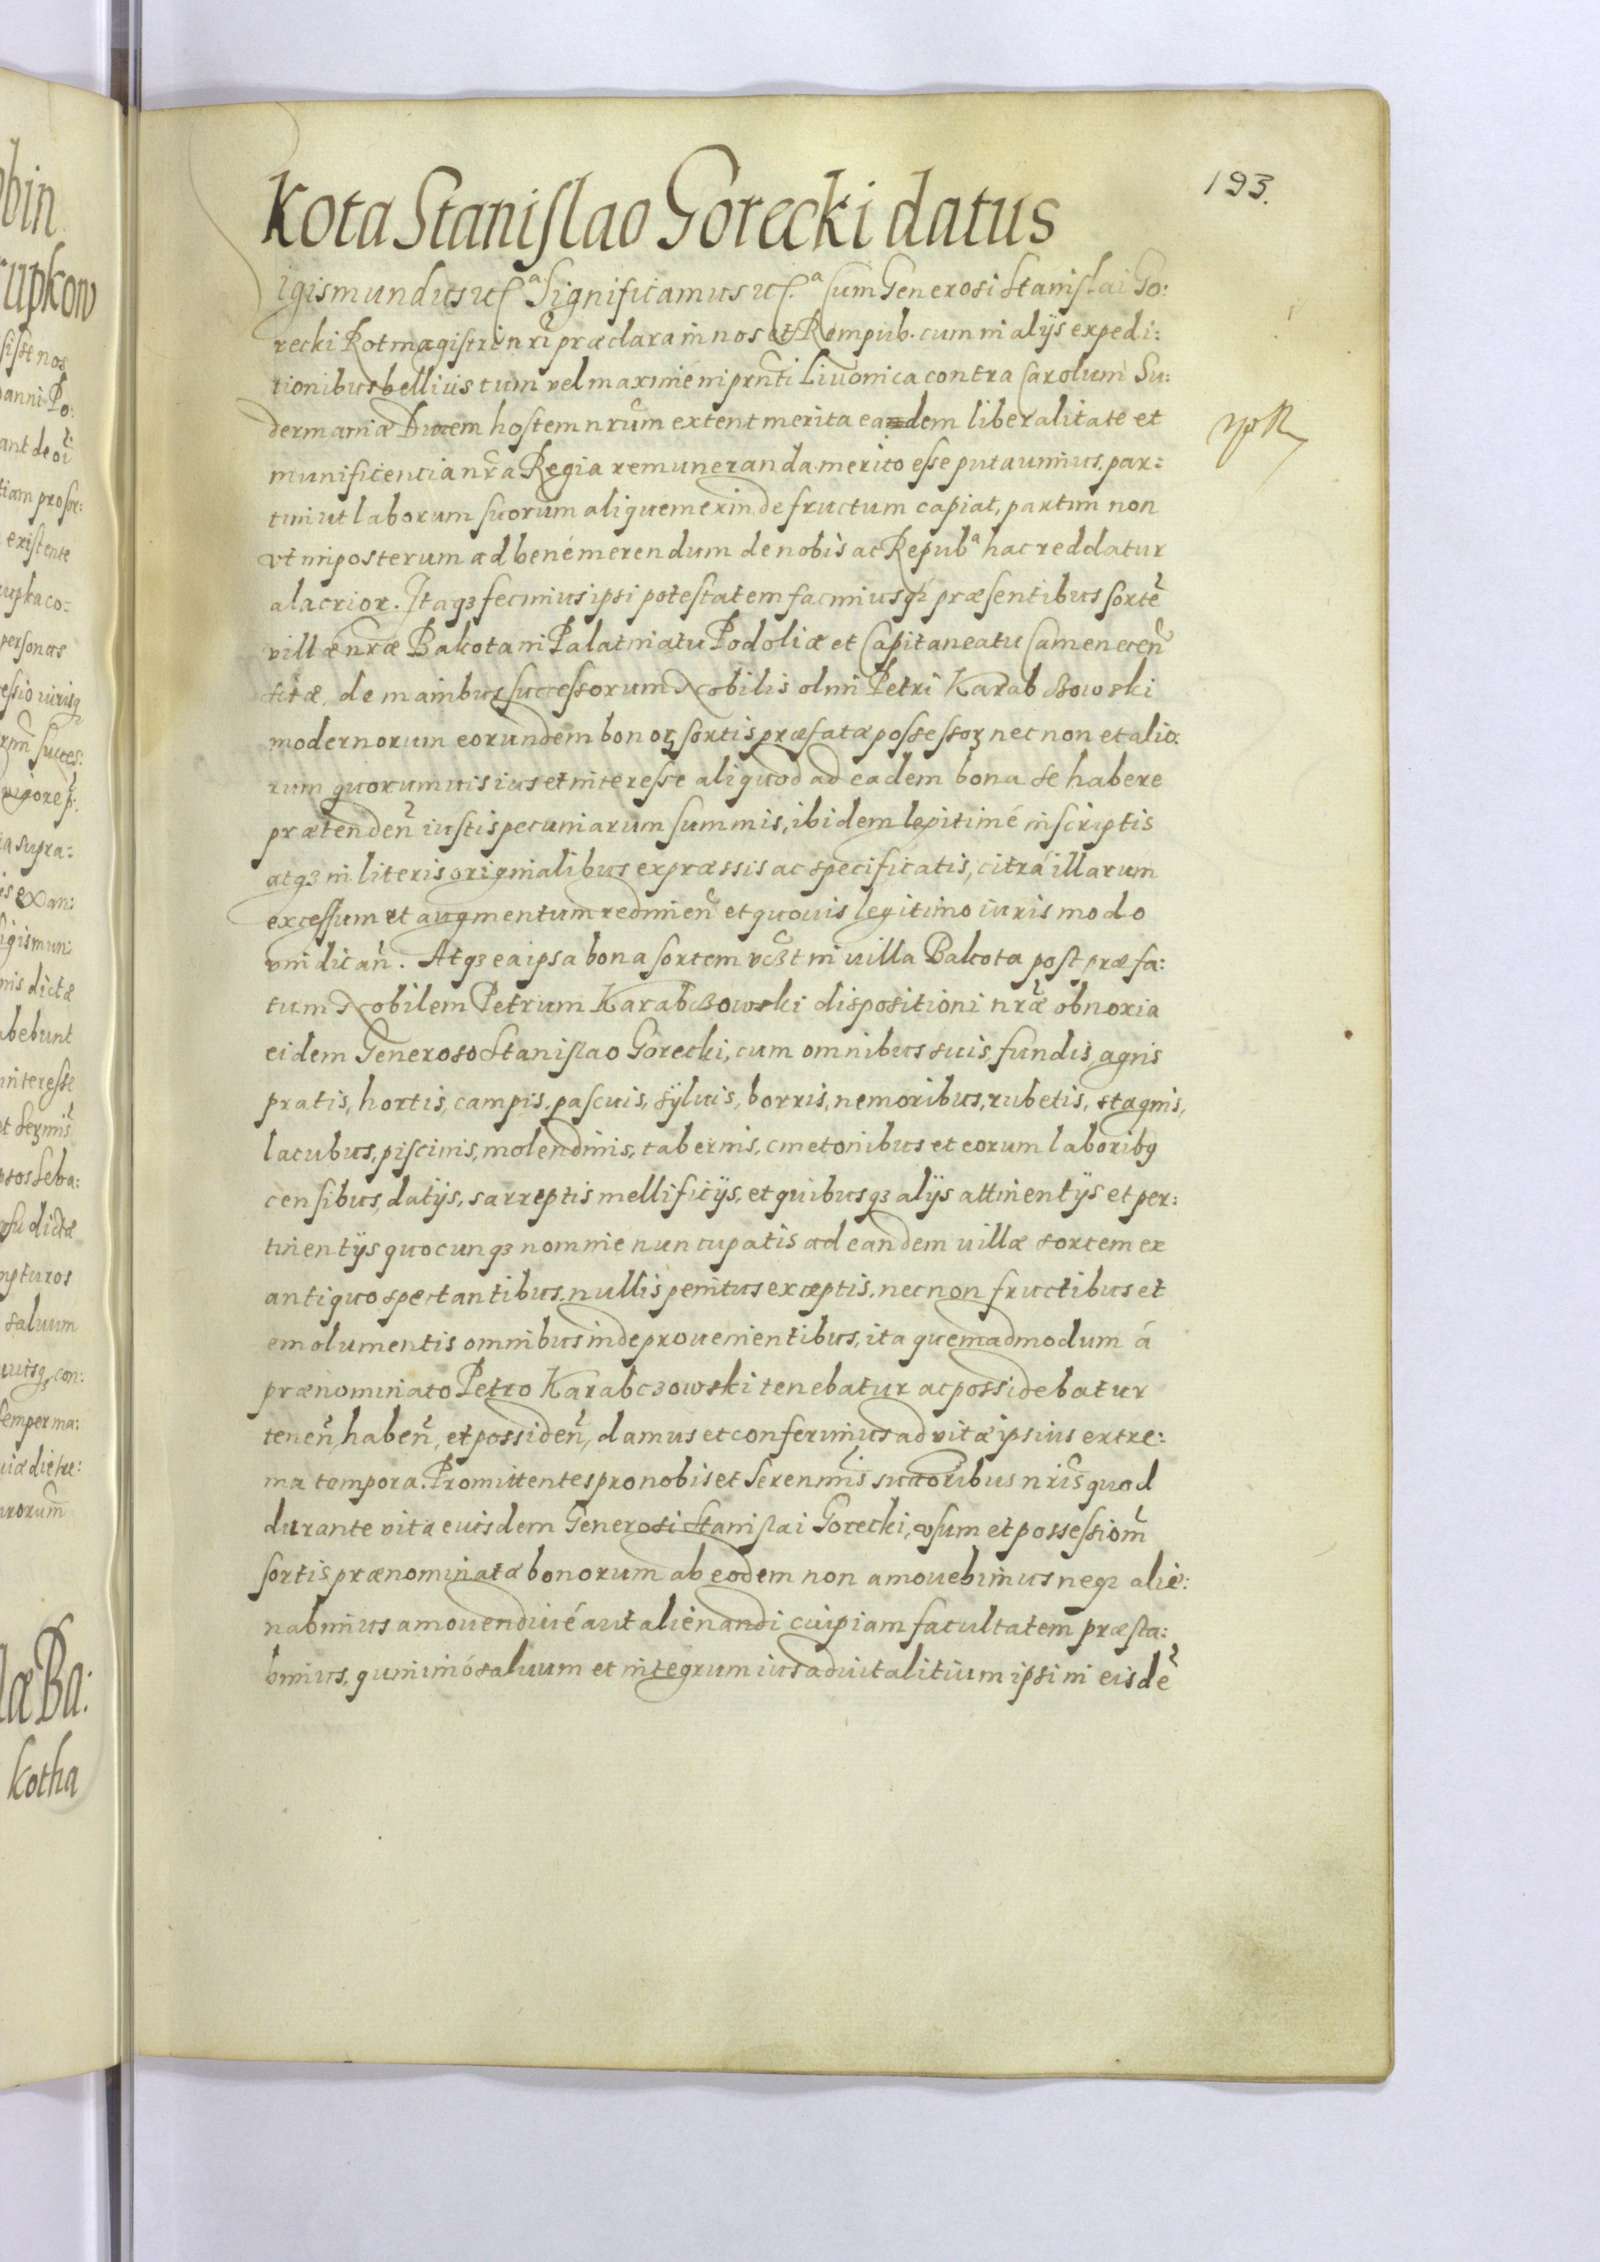 193.
Kota Stanislao Gorecki datus
igismundus etc.ª Significamus etc.ª Cum Generosi Stanislai Go:
recki Rotmagistri nri præclara in nos et Rempub. cum in alijs expedi:
tionibus bellicis tum vel maxime in prnti Livonica contra Carolum Su:
dermaniæ Ducem hostem nrum extent merita eandem liberalitate et
munificencia nra Regia remuneranda merito esse putauimus, par:
tim ut laborum suorum aliquem exinde fructum capiat, partim non
vt in posterum ad bené merendum de nobis ac Repubª hac reddatur
alacrior. Itaqꝫ fecimus ipsi potestatem facimusqꝫ præsentibus sortē
villæ nræ Bakota in Palatinatu Podoliæ et Capitaneatu Camenecen̄
sitæ, de manibus successorum Nobilis olim Petri Karabczowski
modernorum eorundem bonoꝝ sortis præfatæ possessoꝝ nec non et alio:
rum quorumuis ius et interesse aliquod ad eadem bona se habere
prætenden̄ iustis pecuniarum summis, ibidem legitimé inscriptis
atqꝫ in literis originalibus expræssis ac specificatis, citrá illarum
excessum et augmentum redimen̄ et quouis legitimo iuris modo
vindican̄. Atqꝫ ea ipsa bona sortem vcꝫt in uilla Bakota post præfa:
tum Nobilem Petrum Karabczowski dispositioni nræ obnoxia
eidem Generoso Stanislao Gorecki, cum omnibus suis, fundis, agris
pratis, hortis, campis, pascuis, sÿluis, borris, nemoribus, rubetis, stagnis,
lacubus, piscinis, molendinis, tabernis, cmetonibus et eorum laboribꝰ
censibus, datijs, sarreptis mellificijs, et quibusqꝫ alijs attinentijs et per:
tinentijs quocunqꝫ nomine nuncupatis ad eandem uillæ sortem ex
antiquo spectantibus, nullis penitus exceptis, nec non fructibus et
emolumentis omnibus inde prouenientibus, ita quemadmodum á
prænominato Petro Karabczowski tenebatur ac possidebatur
tenen̄, haben̄, et possiden̄, damus et conferimus ad vitæ ipsius extre:
ma tempora. Promittentes pro nobis et Serenmis succoribus nris quod
durante vita eiusdem Generosi Stanislai Gorecki, vsum et possessiom̄
sortis prænominatæ bonorum ab eodem non amouebimus neqꝫ alie:
nabimus amouendiué aut alienandi cuipiam facultatem præsta:
bimus, quinimó saluum et integrum ius aduitalitium ipsi in eisdē